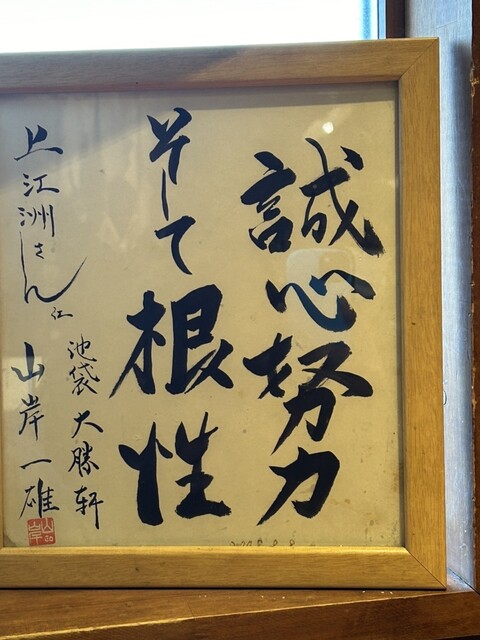 誠心努力
そして根性
上江洲さん江
池袋大勝軒
山岸一雄